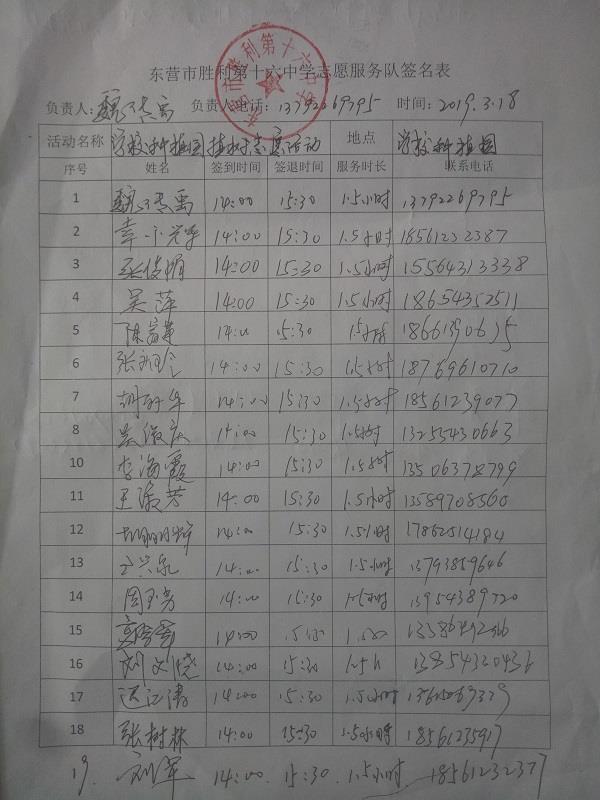 东营市胜利第十六中学志愿服务队签名表
负责人: 魏 禹 负责人电话: 13792269795 时间: 2019.3.18
活动名称 学校种植园植树志愿活动 地点 学校种植园
序号 姓名 签到时间 签退时间 服务时长 联系电话
1 魏 禹 14:00 15:30 1.5小时 13792269795
2 14:00 15:30 1.5小时 18561232387
3 张俊娟 14:00 15:30 1.5小时 15564313338
4 吴萍 14:00 15:30 1.5小时 18654352511
5 陈 14:0 15:30 1.5小时
6 张 14:00 15:30 1.5小时 18769610710
7 胡 华 14:00 15:30 1.5小时 18561239077
8 庆 14:00 15:30 1.5小时 13255430663
10 李海霞 14:00 15:30 1.5小时 13506378799
11 王淑芳 14:00 15:30 1.5小时 13589708560
12 14:00 15:30 1.5小时 17862514184
13 王兴泉 14:00 15:30 1.5小时 13793859646
14 周 芳 14:00 15:30 1.5小时 13954389720
15 14:00
16 刘 晓 14:00 15:30 1.5h 13854320436
17 江涛 14:00 15:30 1.5小时
18 张树林 14:00 15:30 1.5小时 18561235917
19. 刘军 14:00. 15:30. 1.5小时 18561232377